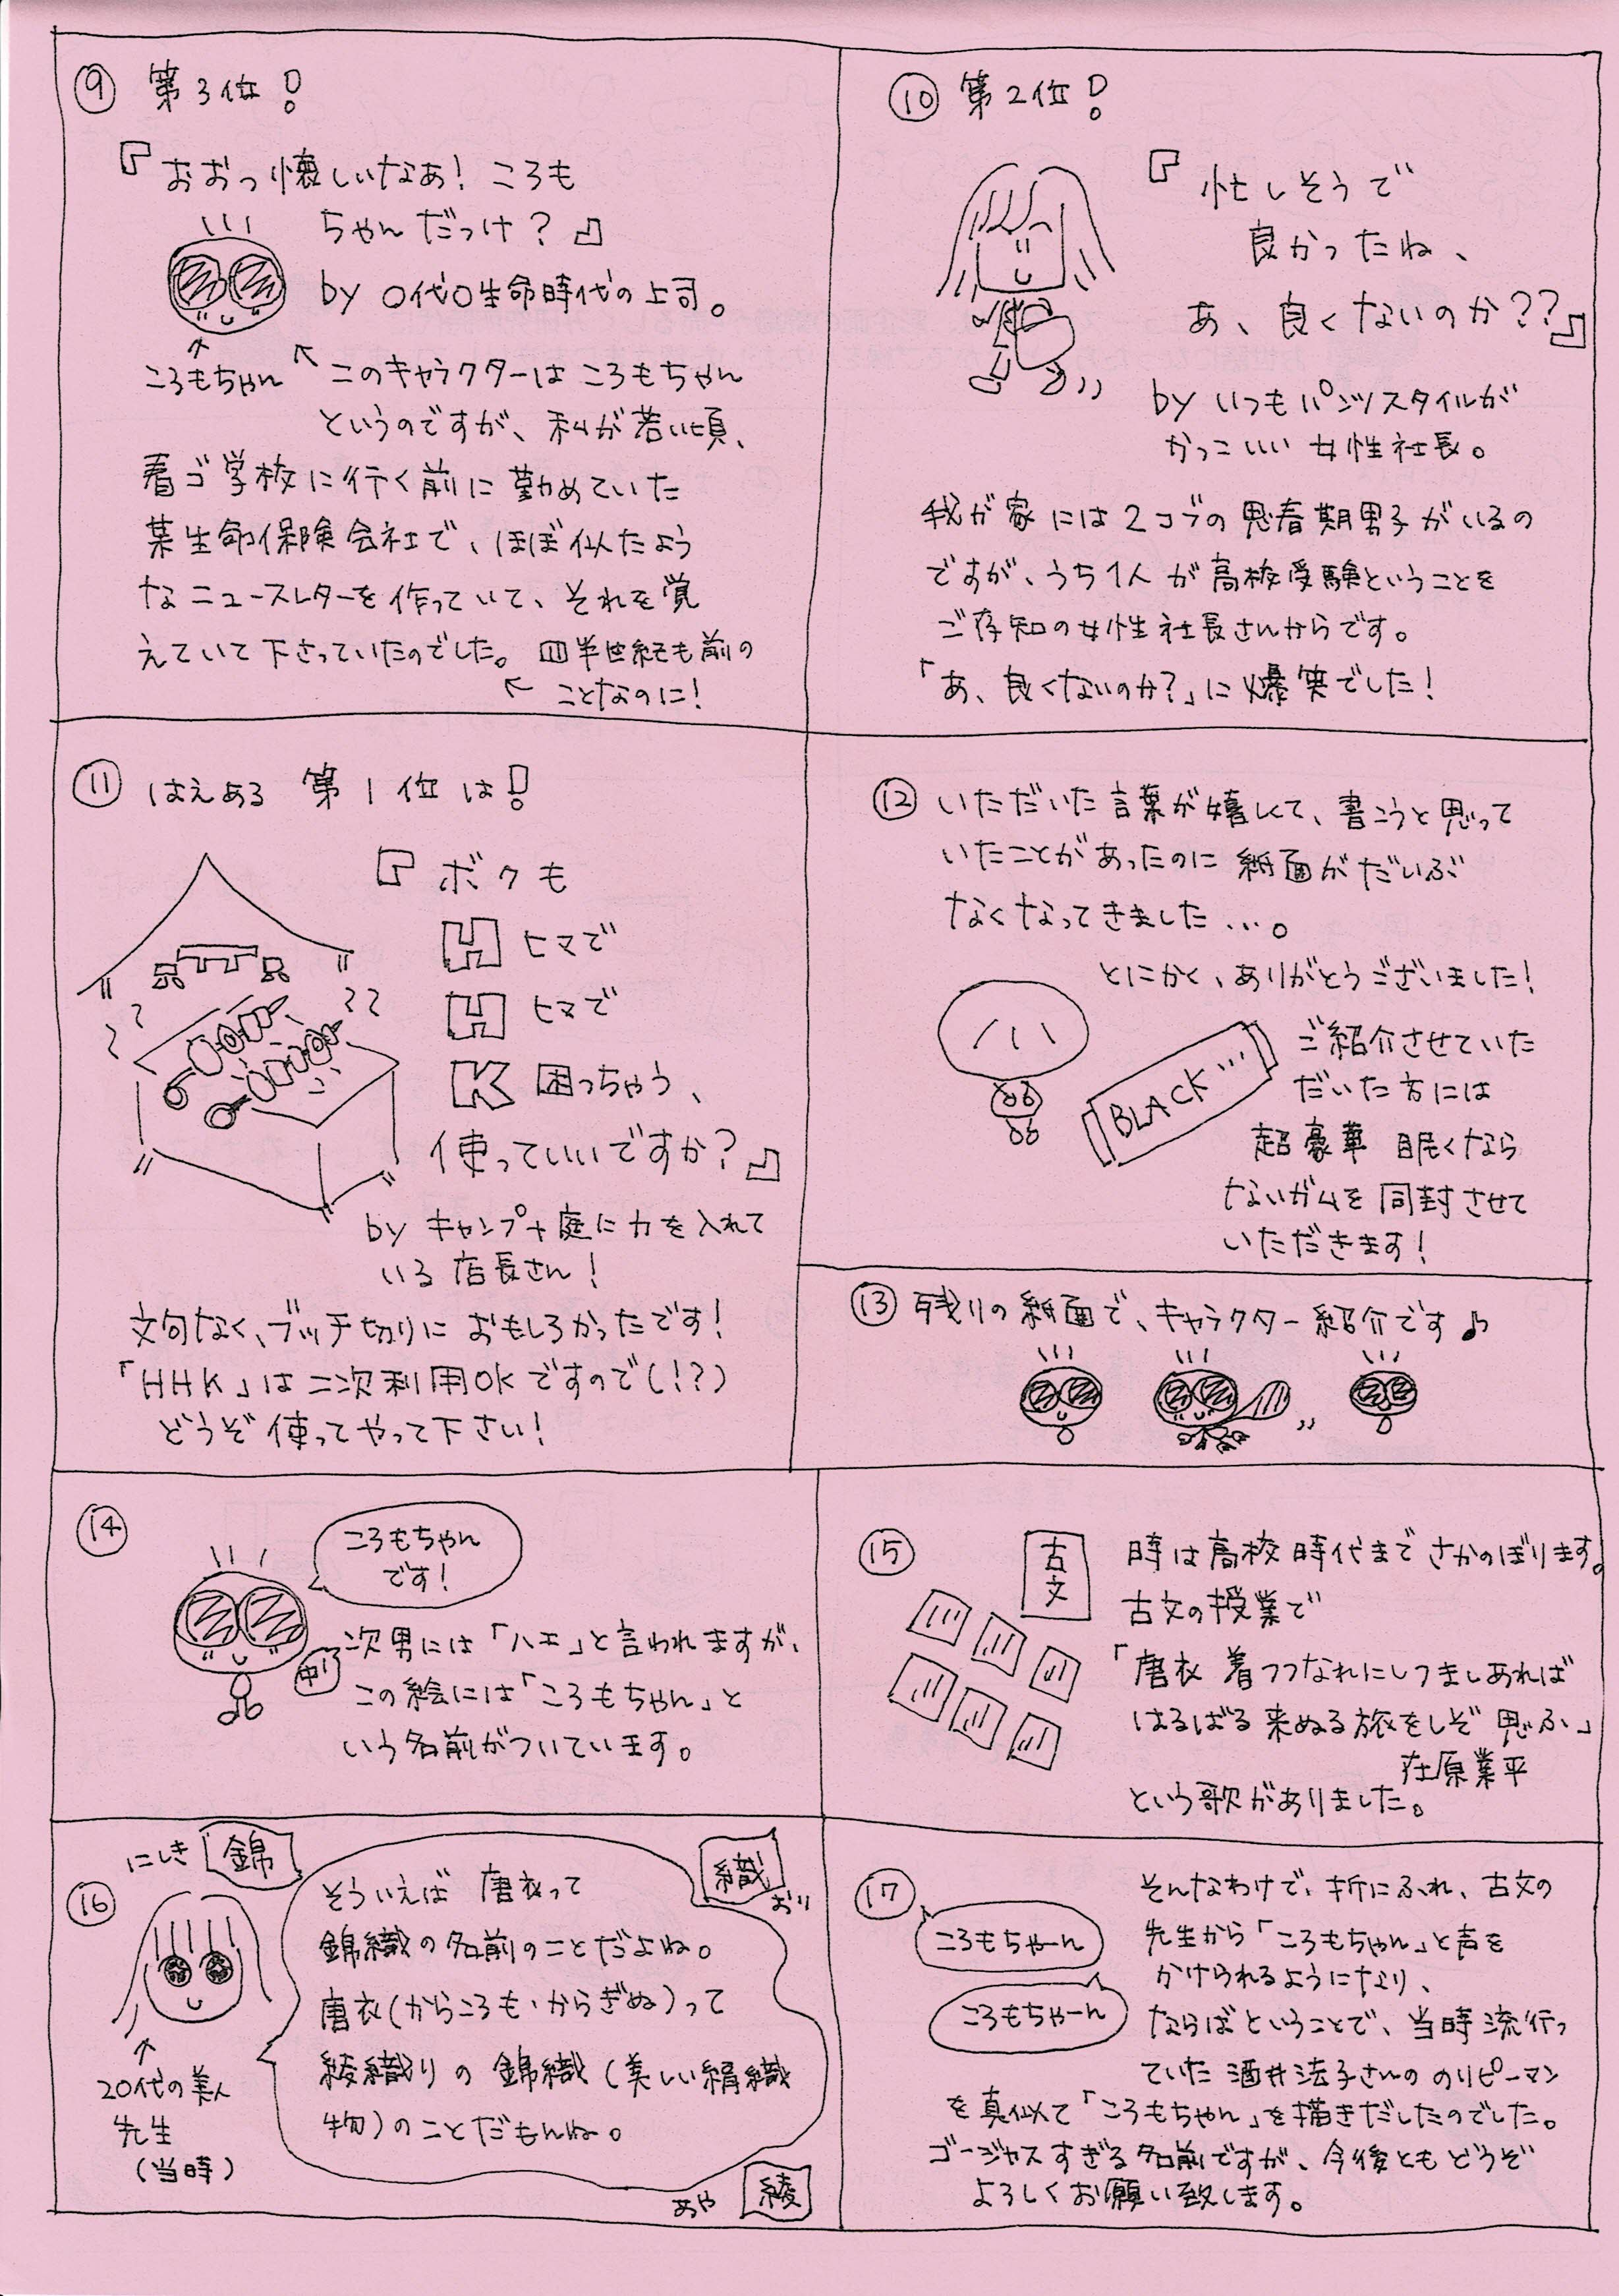 ⑨ 第3位!
『おおっ懐しいなあ! ころも
ちゃんだっけ?』
by ○代○生命時代の上司。
ころもちゃん
このキャラクターは ころもちゃん
というのですが、私が若い頃、
看ゴ学校に行く前に勤めていた
某生命保険会社で、ほぼ似たよう
なニュースレターを作っていて、それを覚
えていて下さっていたのでした。四半世紀も前の
ことなのに!
⑩ 第2位!
『忙しそうで
良かったね、
あ、良くないのか??』
by いつもパンツスタイルが
かっこいい女性社長。
我が家には2コブの思春期男子がいるの
ですが、うち1人が高校受験ということを
ご存知の女性社長さんからです。
「あ、良くないのか?」に爆笑でした!
⑪ はえある 第1位は!
『ボクも
H ヒマで
H ヒマで
K 困っちゃう、
使っていいですか?』
by キャンプ+庭に力を入れて
いる店長さん!
文句なく、ブッチ切りにおもしろかったです!
「HHK」は二次利用OKですので(!?)
どうぞ使ってやって下さい!
⑫ いただいた言葉が嬉しくて、書こうと思って
いたことがあったのに紙面がだいぶ
なくなってきました…。
とにかく、ありがとうございました!
BLACK…
ご紹介させていた
だいた方には
超豪華 眠くなら
ないガムを同封させて
いただきます!
⑬ 残りの紙面で、キャラクター紹介です♪
⑭
ころもちゃん
です!
次男には「ハエ」と言われますが、
中1
この絵には「ころもちゃん」と
いう名前がついています。
⑮
古文
時は高校時代までさかのぼります。
古文の授業で
「唐衣 着つつなれにしつましあれば
はるばる来ぬる旅をしぞ思ふ」
在原業平
という歌がありました。
⑯
にしき 錦
織 おり
そういえば 唐衣って
錦織の名前のことだよね。
唐衣(からころも・からぎぬ)って
綾織りの錦織(美しい絹織
物)のことだもんね。
20代の美人
先生
(当時)
あや 綾
⑰
ころもちゃーん
ころもちゃーん
そんなわけで、折にふれ、古文の
先生から「ころもちゃん」と声を
かけられるようになり、
ならばということで、当時流行っ
ていた酒井法子さんののりピーマン
を真似て「ころもちゃん」を描きだしたのでした。
ゴージャスすぎる名前ですが、今後ともどうぞ
よろしくお願い致します。